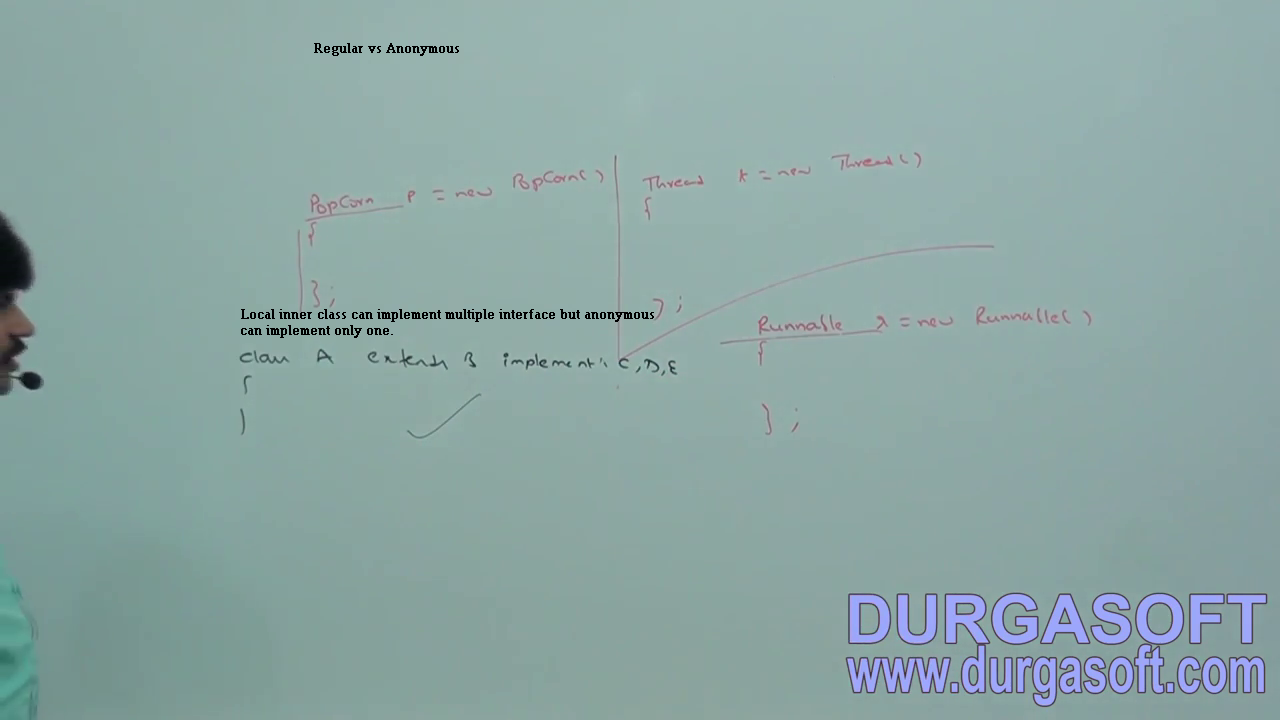 Regular vs Anonymous
PopCorn P = new PopCorn()
{
};
Thread t = new Thread()
{
};
Local inner class can implement multiple interface but anonymous
can implement only one.
class A extends B implements C, D, E
{
}
Runnable r = new Runnable()
{
};
DURGASOFT
www.durgasoft.com